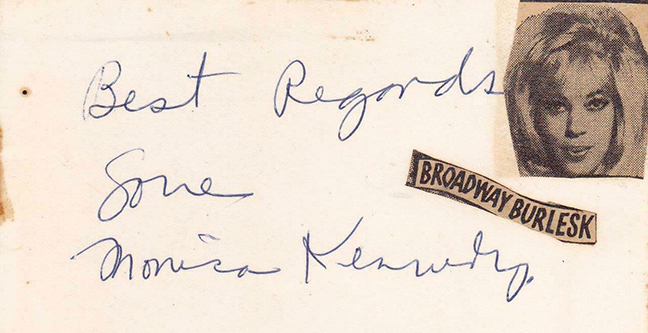 Best Regards
BROADWAY BURLESK
Monica Kennedy.